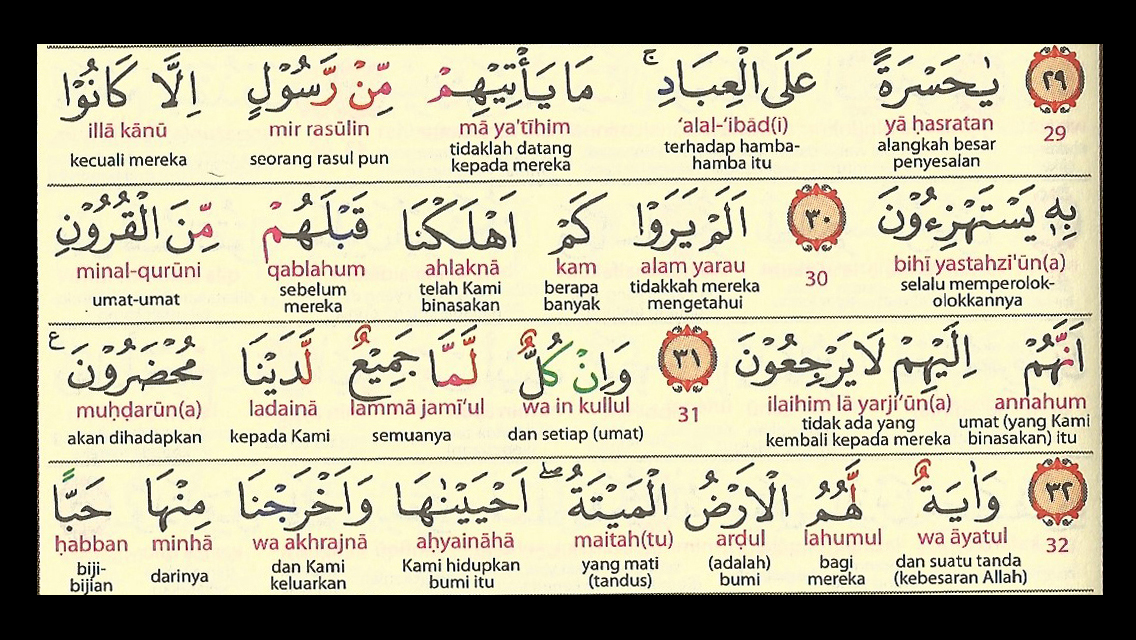 ٢٩ يٰحَسْرَةً عَلَى الْعِبَادِۚ مَا يَأْتِيْهِمْ مِّنْ رَّسُوْلٍ اِلَّا كَانُوْا
29 yā ḥasratan ‘alal-‘ibād(i) mā ya'tīhim mir rasūlin illā kānū
alangkah besar penyesalan terhadap hamba-hamba itu tidaklah datang kepada mereka seorang rasul pun kecuali mereka
بِهٖ يَسْتَهْزِءُوْنَ ٣٠ اَلَمْ يَرَوْا كَمْ اَهْلَكْنَا قَبْلَهُمْ مِّنَ الْقُرُوْنِ
bihī yastahzi'ūn(a) 30 alam yarau kam ahlaknā qablahum minal-qurūni
selalu memperolok-olokkannya tidakkah mereka mengetahui berapa banyak telah Kami binasakan sebelum mereka umat-umat
اَنَّهُمْ اِلَيْهِمْ لَا يَرْجِعُوْنَ ٣١ وَاِنْ كُلٌّ لَّمَّا جَمِيْعٌ لَّدَيْنَا مُحْضَرُوْنَ ع
annahum ilaihim lā yarji‘ūn(a) 31 wa in kullul lammā jamī‘ul ladainā muḥḍarūn(a)
umat (yang Kami binasakan) itu tidak ada yang kembali kepada mereka dan setiap (umat) semuanya kepada Kami akan dihadapkan
٣٢ وَاٰيَةٌ لَّهُمُ الْاَرْضُ الْمَيْتَةُۖ اَحْيَيْنٰهَا وَاَخْرَجْنَا مِنْهَا حَبًّا
32 wa āyatul lahumul arḍul maitah(tu) aḥyaināhā wa akhrajnā minhā ḥabban
dan suatu tanda (kebesaran Allah) bagi mereka (adalah) bumi yang mati (tandus) Kami hidupkan bumi itu dan Kami keluarkan darinya biji-bijian